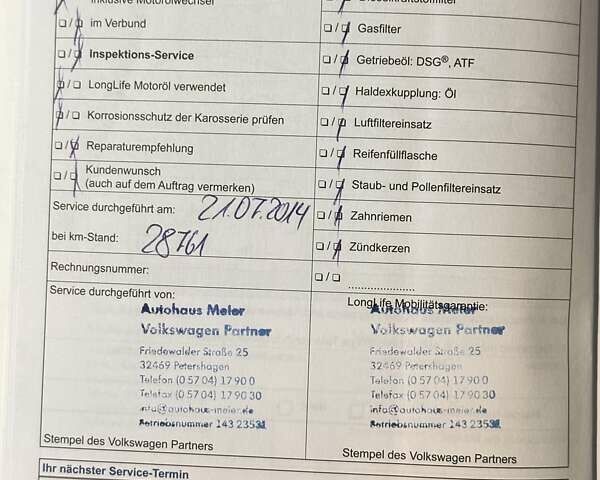 Inklusive Motorölwechsel
im Verbund
Inspektions-Service
LongLife Motoröl verwendet
Korrosionsschutz der Karosserie prüfen
Reparaturempfehlung
Kundenwunsch
(auch auf dem Auftrag vermerken)
Service durchgeführt am: 21.07.2014
bei km-Stand: 28761
Rechnungsnummer:
Service durchgeführt von:
Autohaus Meier
Volkswagen Partner
Friedewalder Straße 25
32469 Petershagen
Telefon (0 57 04) 17 90 0
Telefax (0 57 04) 17 90 30
info@autohaus-meier.de
Betriebsnummer 143 23531
Stempel des Volkswagen Partners
Gasfilter
Getriebeöl: DSG®, ATF
Haldexkupplung: Öl
Luftfiltereinsatz
Reifenfüllflasche
Staub- und Pollenfiltereinsatz
Zahnriemen
Zündkerzen
....................
LongLife Mobilitätsgarantie:
Autohaus Meier
Volkswagen Partner
Friedewalder Straße 25
32469 Petershagen
Telefon (0 57 04) 17 90 0
Telefax (0 57 04) 17 90 30
info@autohaus-meier.de
Betriebsnummer 143 23531
Stempel des Volkswagen Partners
Ihr nächster Service-Termin